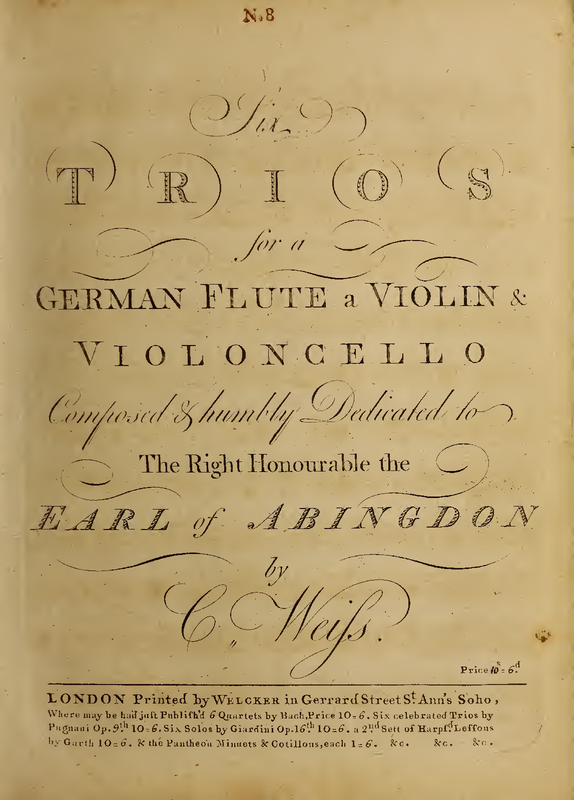 N.8
Six
TRIOS
for a
GERMAN FLUTE a VIOLIN &
VIOLONCELLO
Composed & humbly Dedicated to
The Right Honourable the
EARL of ABINGDON
by
C. Weiſs.
Price 10s=6d.
LONDON Printed by WELCKER in Gerrard Street St. Ann's Soho,
Where may be had juſt Publiſh'd 6 Quartets by Bach, Price 10=6. Six celebrated Trios by
Pugnani Op. 9th 10=6. Six Solos by Giardini Op. 16th 10=6. a 2nd Sett of Harpsd. Leſſons
by Garth 10=6. & the Pantheon Minuets & Cotillons, each 1=6. &c. &c. &c.